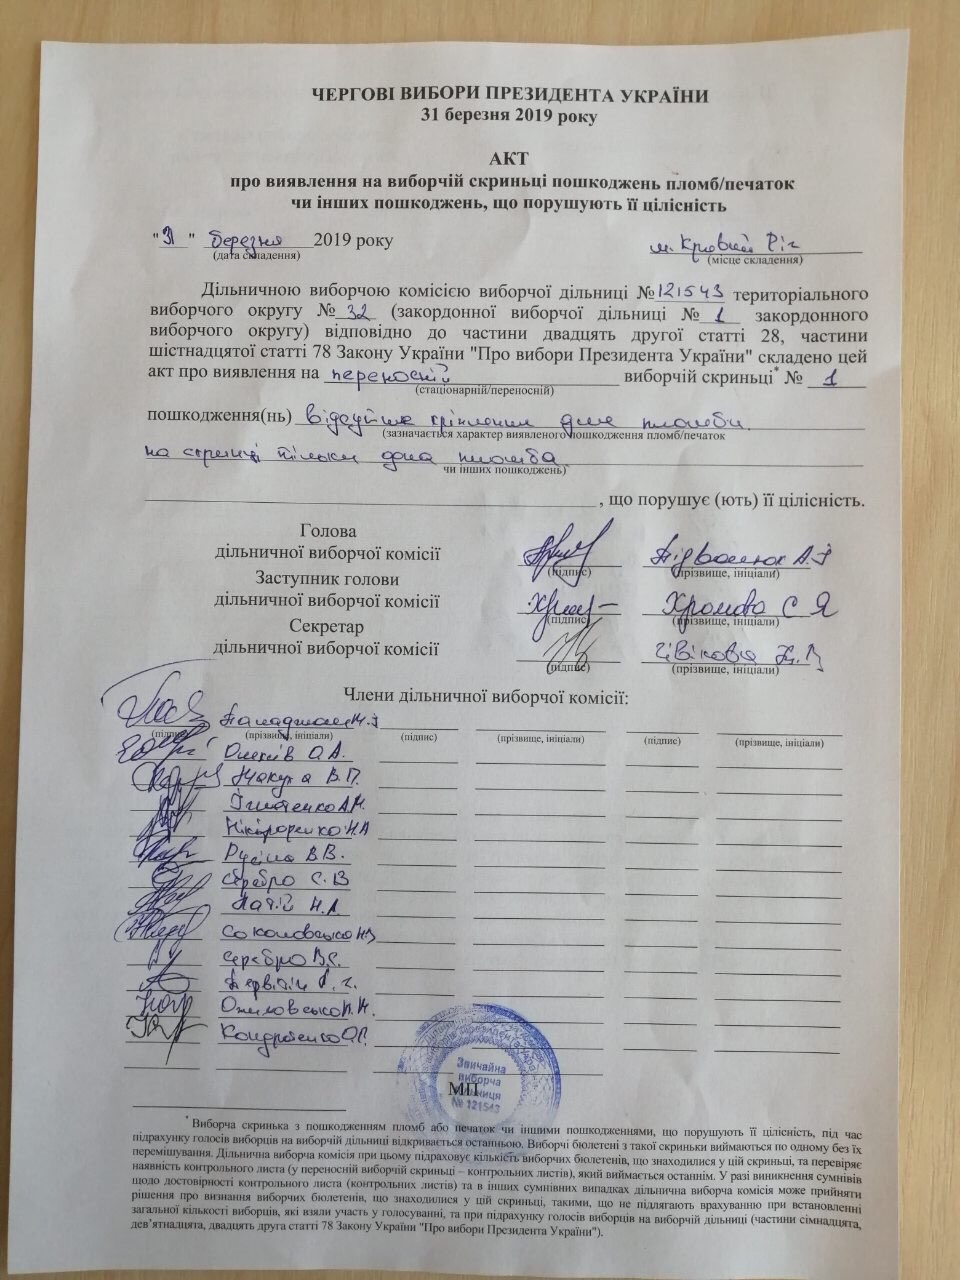 ЧЕРГОВІ ВИБОРИ ПРЕЗИДЕНТА УКРАЇНИ
31 березня 2019 року
АКТ
про виявлення на виборчій скриньці пошкоджень пломб/печаток
чи інших пошкоджень, що порушують її цілісність
"31" березня 2019 року м. Кривий Ріг
(дата складення) (місце складення)
Дільничною виборчою комісією виборчої дільниці №121543 територіального
виборчого округу № 32 (закордонної виборчої дільниці № 1 закордонного
виборчого округу) відповідно до частини двадцять другої статті 28, частини
шістнадцятої статті 78 Закону України "Про вибори Президента України" складено цей
акт про виявлення на переносній виборчій скриньці* № 1
(стаціонарній/переносній)
пошкодження(нь) відсутнє кріплення для пломби.
(зазначається характер виявленого пошкодження пломб/печаток
на скрині тільки одна пломба
чи інших пошкоджень)
, що порушує (ють) її цілісність.
Голова
дільничної виборчої комісії
(підпис) (прізвище, ініціали)
Заступник голови
дільничної виборчої комісії Хромова С Я
(підпис) (прізвище, ініціали)
Секретар
дільничної виборчої комісії
(підпис) (прізвище, ініціали)
Члени дільничної виборчої комісії:
(підпис) (прізвище, ініціали) (підпис) (прізвище, ініціали) (підпис) (прізвище, ініціали)
Олексів О.А.
В.П.
Ігнатенко А.М.
Нікіфоренко Н.А
Русіна В.В.
Серебро С.В
Н.А
Соколовська Н.В
Серебро В.С.
Кондратенко О.Г.
Звичайна
виборча
дільниця
№ 121543
МП
* Виборча скринька з пошкодженням пломб або печаток чи іншими пошкодженнями, що порушують її цілісність, під час
підрахунку голосів виборців на виборчій дільниці відкривається останньою. Виборчі бюлетені з такої скриньки виймаються по одному без їх
перемішування. Дільнична виборча комісія при цьому підраховує кількість виборчих бюлетенів, що знаходилися у цій скриньці, та перевіряє
наявність контрольного листа (у переносній виборчій скриньці – контрольних листів), який виймається останнім. У разі виникнення сумнівів
щодо достовірності контрольного листа (контрольних листів) та в інших сумнівних випадках дільнична виборча комісія може прийняти
рішення про визнання виборчих бюлетенів, що знаходилися у цій скриньці, такими, що не підлягають врахуванню при встановленні
загальної кількості виборців, які взяли участь у голосуванні, та при підрахунку голосів виборців на виборчій дільниці (частини сімнадцята,
дев’ятнадцята, двадцять друга статті 78 Закону України "Про вибори Президента України").